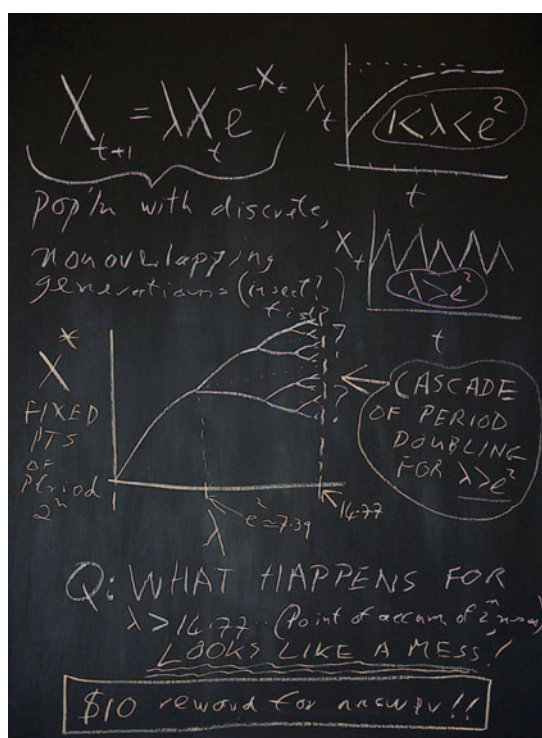 X_{t+1} = λX_t e^{-X_t}
X_t
1<λ<e^2
t
Pop'ln with discrete,
nonoverlapping
generations (insect?
fish?)
X_t
λ>e^2
t
X*
FIXED
PTS
OF
Period
2^n
?
?
?
CASCADE
OF PERIOD
DOUBLING
FOR λ>e^2
e^2=7.39
14.77
λ
Q: WHAT HAPPENS FOR
λ > 14.77.. (Point of accum of 2^n
LOOKS LIKE A MESS!
$10 reward for answer!!